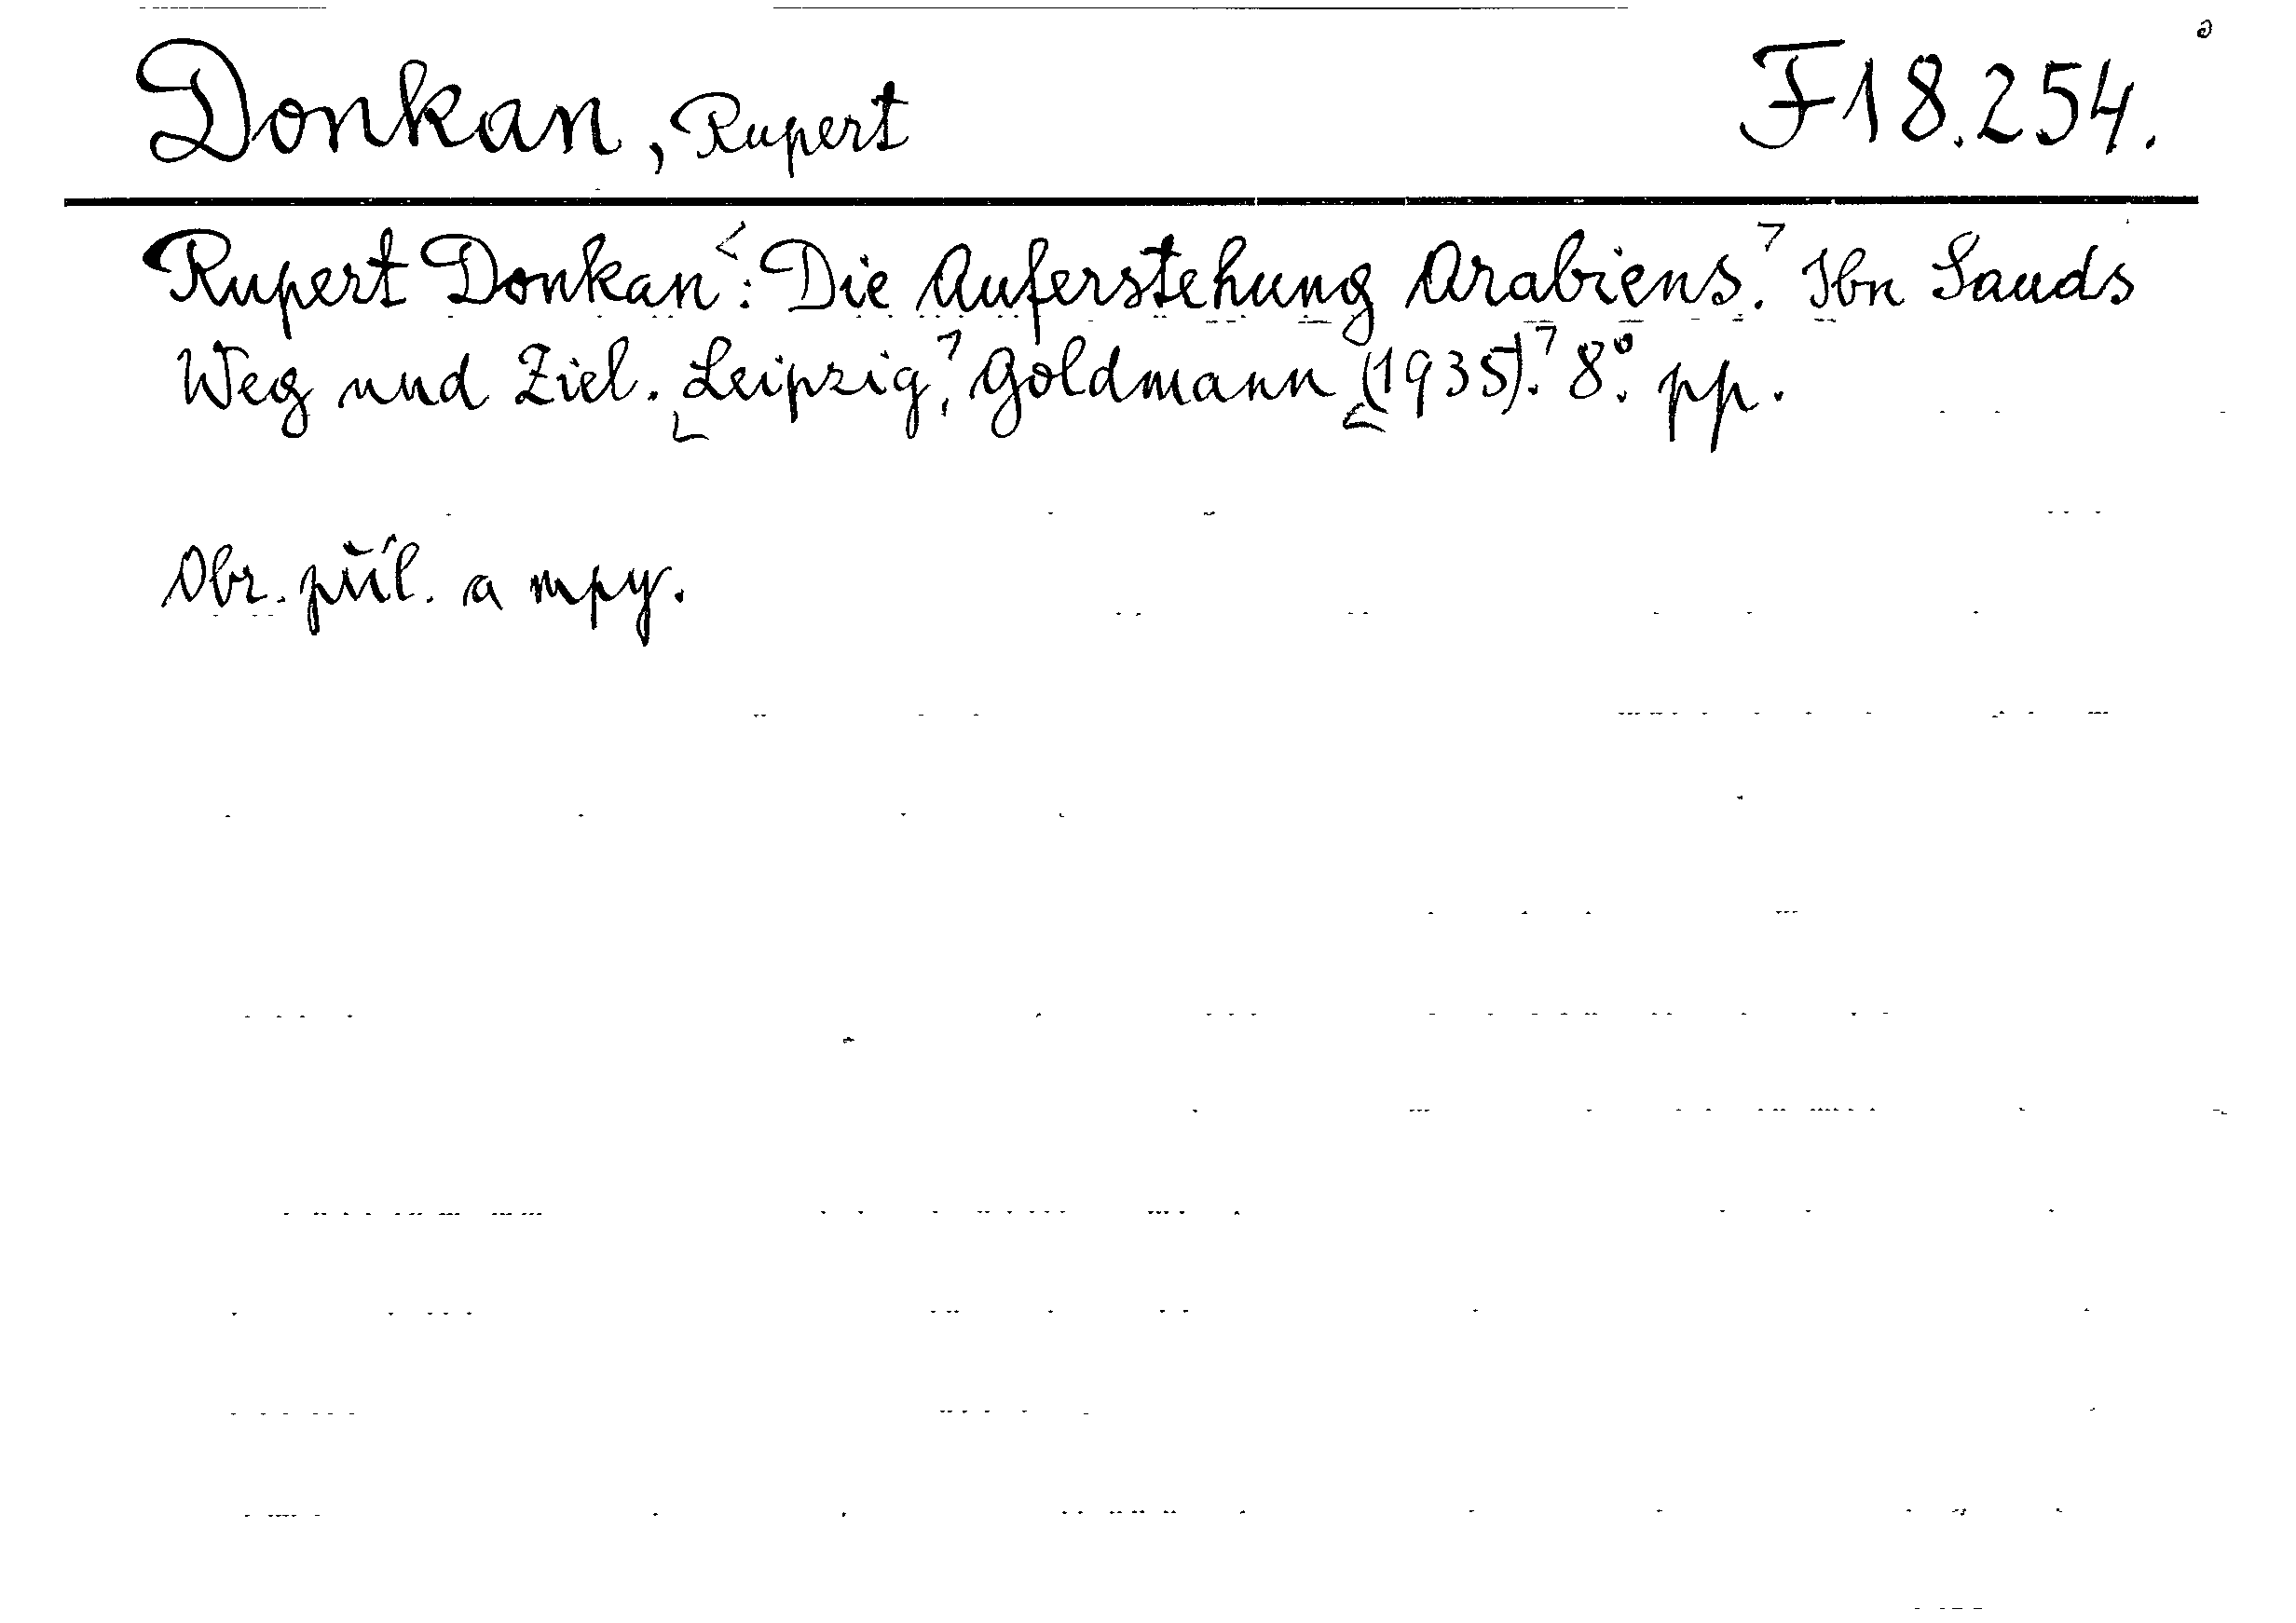 Donkan, Rupert F18.254.
Rupert Donkan: Die Auferstehung Arabiens. Ibn Sauds
Weg und Ziel. Leipzig, Goldmann (1935). 8°. pp.
Obr. příl. a mpy.